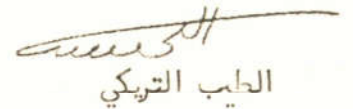 الطيب التريكي